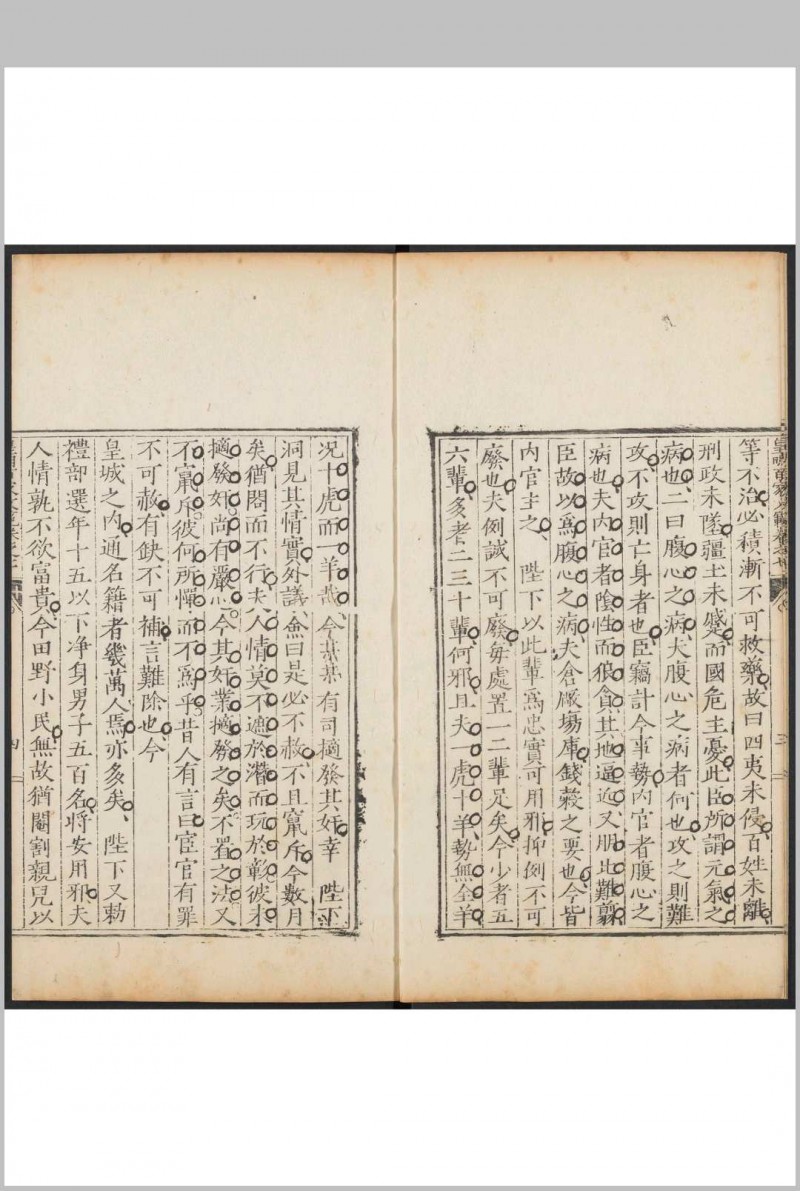 等不治必積漸不可救藥故曰四夷未侵百姓未離
刑政未墜疆土未蹙而國危主憂此臣所謂元氣之
病也二曰腹心之病夫腹心之病者何也攻之則難
攻不攻則亡身者也臣竊計今事勢內官者腹心之
病也夫內官者陰性而狼貪其地逼近又朋比難翦
臣故以爲腹心之病夫倉厰塲庫錢穀之要也今皆
內官主之陛下以此輩爲忠實可用邪抑例不可
廢也夫例誠不可廢毎處置一二輩足矣今少者五
六輩多者二三十輩何邪且夫一虎十羊勢無全羊
况十虎而一羊哉今某某有司擿發其奸幸陛下
洞見其情實外議僉曰是必不赦不且竄斥今數月
矣猶閣而不行夫人情莫不遮於潛而玩於彰彼未
擿發奸尚有嚴心今其奸業擿發之矣不置之法又
不竄斥彼何所憚而不爲乎昔人有言曰宦官有罪
不可赦有缺不可補言難除也今
皇城之內通名籍者幾萬人焉亦多矣陛下又勑
禮部選年十五以下净身男子五百名將安用邪夫
人情孰不欲富貴今田野小民無故猶閹割親兒以
四